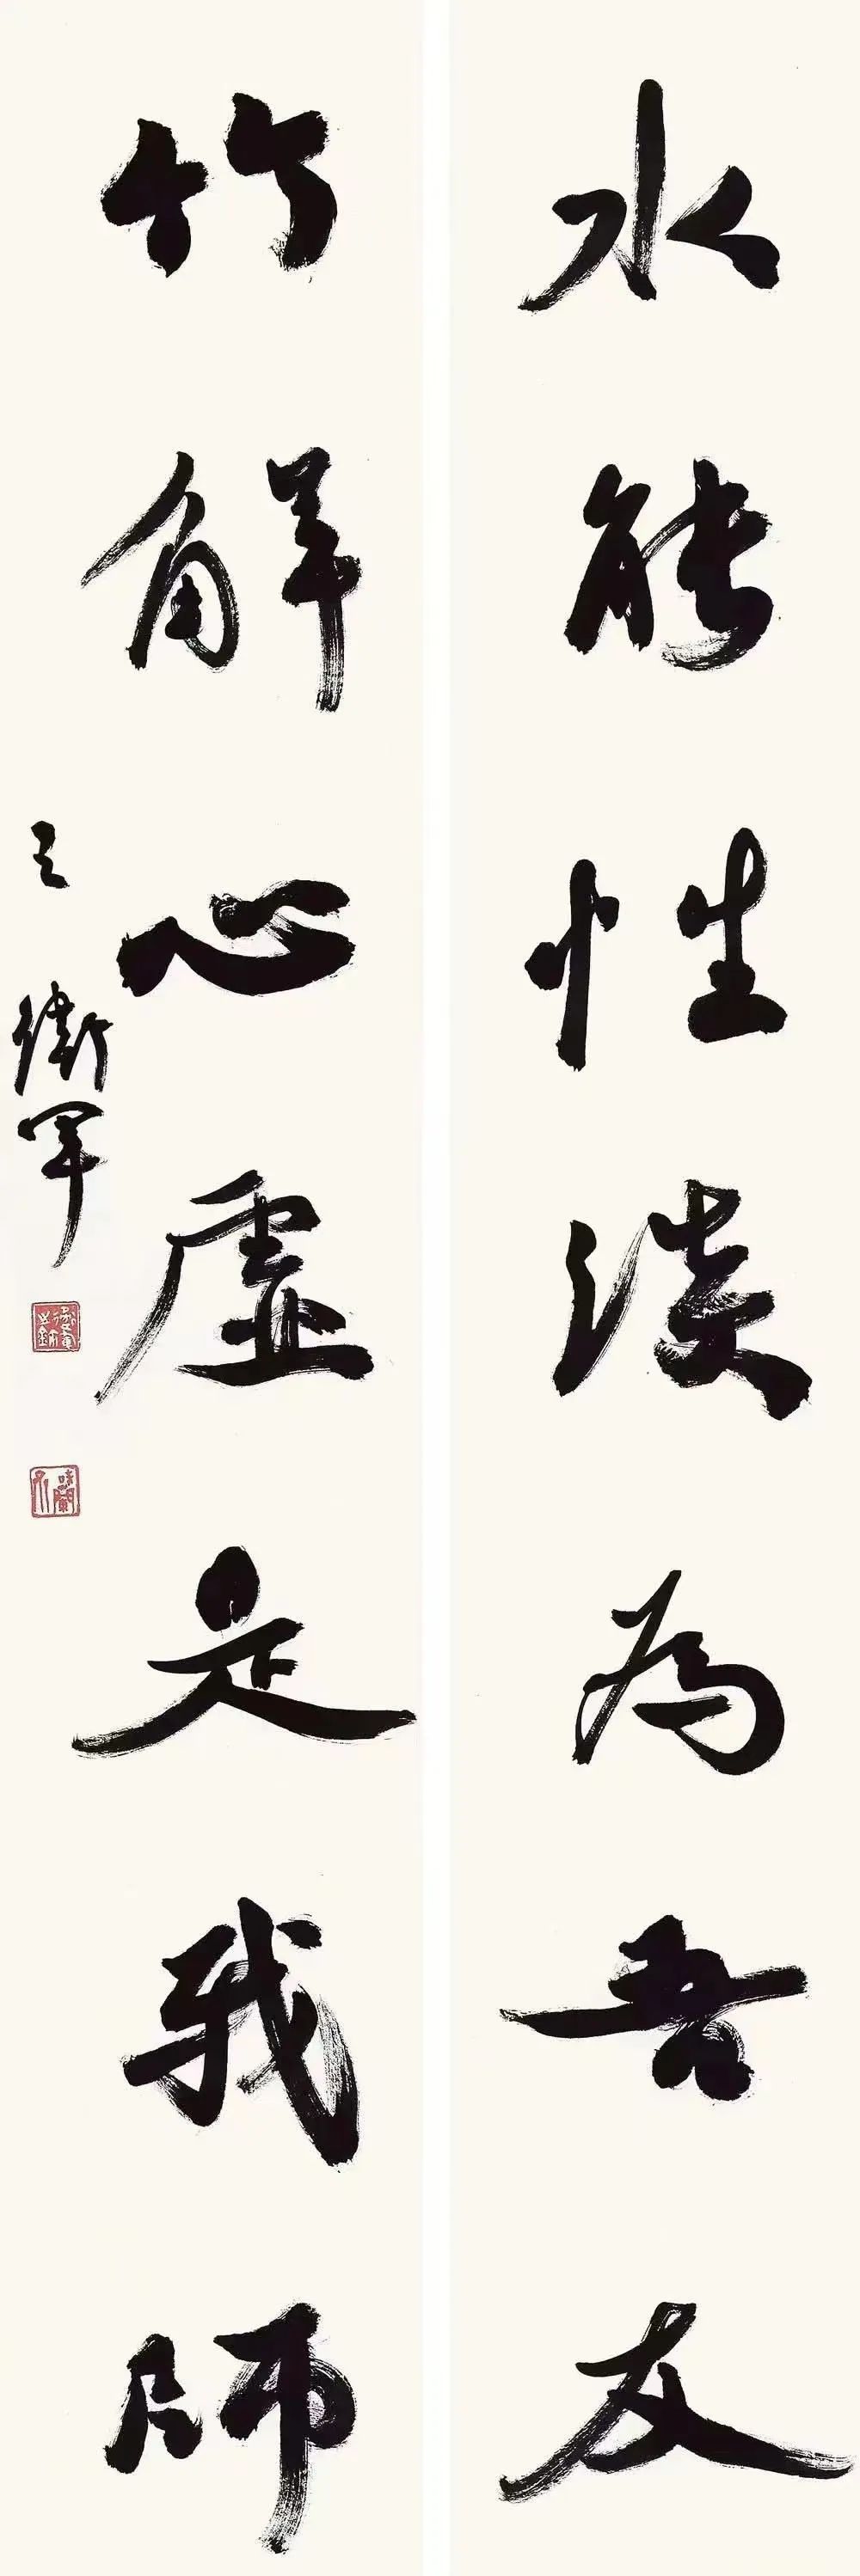 水能性淡為吾友
竹解心虛是我師
衛軍